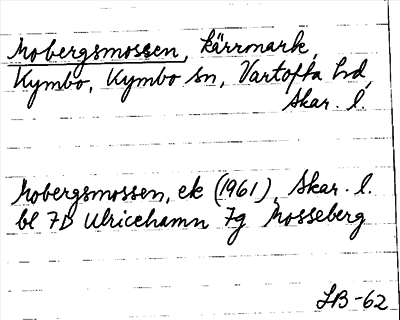 Mobergsmossen, kärrmark,
Kymbo, Kymbo sn, Vartofta hd,
Skar. l.
Mobergsmossen, ek (1961), Skar. l.
bl 7D Ulricehamn 7g Mosseberg
LB-62